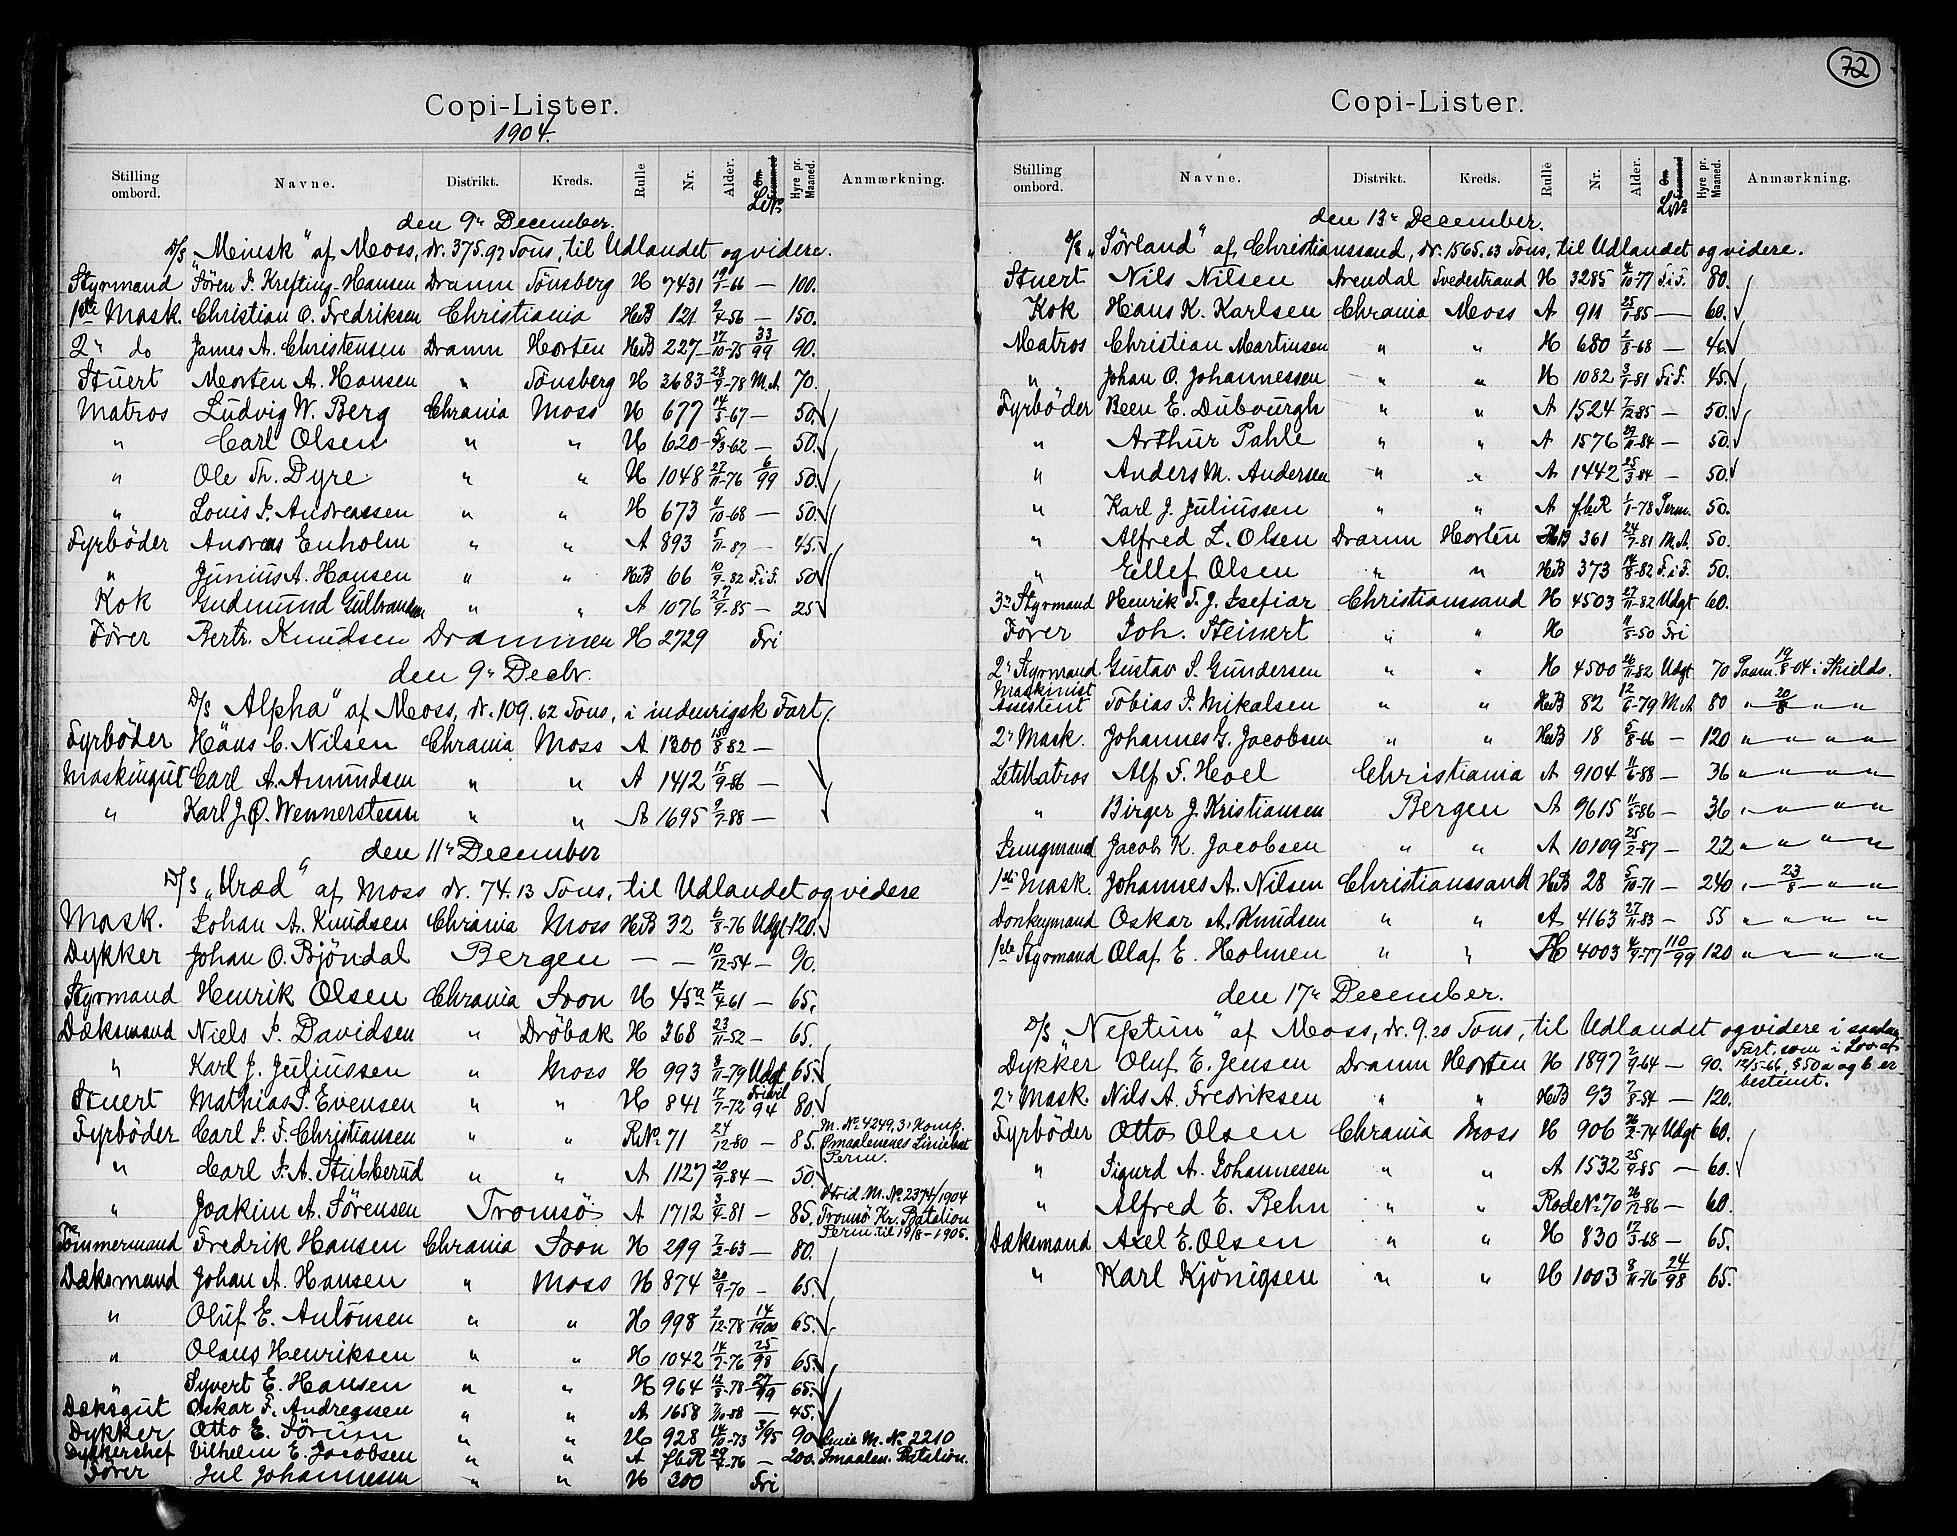 Copi-Lister.
1904.
Stilling ombord. Navne. Distrikt. Kreds. Rulle Nr. Alder. Hyre pr. Maaned. Anmærkning.
den 9n December.
D/S „Minesk" af Moss, dr. 375.92 Tons, til Udlandet og videre.
Styrmand Sören J. Krefting-Hansen Dramn Tönsberg H 7431 19/1-66 — 100.
1ste Mask. Christian O. Fredriksen Christiania HvB 121 9/4-56 — 150.
2n do James A. Christensen Dramn Horten HvB 227 17/10-75 33/99 90.
Stuert Morten A. Hansen " Tönsberg H 3683 28/9-78 M.A. 70.
Matros Ludvig W. Berg Chrania Moss H 677 14/5-67 — 50.
" Carl Olsen " " H 620 5/3-62 — 50.
" Ole Th. Dyre " " H 1048 27/11-76 6/99 50.
" Louis J. Andreassen " " H 673 4/10-68 — 50.
Fyrböder Andreas Enholm " " A 893 5/11-87 — 45.
" Junius A. Hansen " " HvB 66 10/9-82 F.i.F. 50
Kok Gudmund Gulbransen " " A 1076 27/9-85 — 25
Förer Bertr. Knudsen Drammen H 2729 Fri
den 9n Decbr.
D/S „Alpha" af Moss, dr. 109.62 Tons, i indenrigsk Fart.
Fyrböder Hans C. Nilsen Chrania Moss A 1300 /8-82 —
Maskingut Carl A. Amundsen " " A 1412 15/9-86 —
" Karl J. O. Wennersteen " " A 1695 9/7-88 —
den 11n December
D/S „Uræd" af Moss dr. 74.13 Tons, til Udlandet og videre
Mask. Johan A. Knudsen Chrania Moss HvB 32 6/8-76 Udgt 120.
Dykker Johan O. Bjöndal Bergen — — 10/12-54 — 90.
Styrmand Henrik Olsen Chrania Soon H 45a 12/4-61 — 65.
Dæksmand Niels J. Davidsen " Dröbak H 368 23/11-52 — 65.
" Karl J. Juliussen " Moss H 993 8/11-79 Udgt 65.
Stuert Mathias S. Evensen " " H 841 17/7-72 Frivil 94 80.
Fyrböder Carl J. F. Christiansen " " R.No 71 24/12-80 — 85. M. No 4249, 3i Komp. Smaalenenes Liniebat Perm.
" Carl J. A. Stubberud " " A 1127 20/9-84 — 50.
" Joakim A. Sörensen Tromsö A 1712 3/4-81 — 85. Strid. M. No 2374/1904 Tromsö Kr. Batalion Perm til 19/8-1905.
Tömmermand Fredrik Hansen Chrania Soon H 299 7/2-63 — 80.
Dæksmand Johan A. Hansen " Moss H 874 30/9-70 — 65.
" Oluf E. Antonsen " " H 998 2/12-78 14/1900 65.
" Olaus Henriksen " " H 1042 14/7-76 25/98 65.
" Syvert E. Hansen " " H 964 12/8-78 27/99 65.
Dæksgut Oskar F. Andreassen " " A 1658 7/10-88 — 45.
Dykker Otto E. Sörum " " H 928 14/10-73 3/95 90 Linie M. No 2210
Dykkerchef Vilhelm E. Jacobsen " " A f.b.R 29/4-76 — 200. Smaalen. Batalion.
Förer Jul Johannesen " " H 300 Fri
72
Copi-Lister.
Stilling ombord. Navne. Distrikt. Kreds. Rulle Nr. Alder. Hyre pr. Maaned. Anmærkning.
den 13n December.
D/S „Sörland" af Christianssand, dr. 1565.63 Tons, til Udlandet og videre.
Stuert Nils Nilsen Arendal Tvedestrand H 3285 4/10-77 F.i.F. 80.
Kok Hans K. Karlsen Chrania Moss A 911 25/1-85 — 60.
Matros Christian Martinsen " " H 680 2/8-68 — 46.
" Johan O. Johannessen " " H 1082 3/1-81 F.i.F. 45.
Fyrböder Been E. Dubourgh " " A 1524 7/12-85 — 50.
" Arthur Pahle " " A 1576 29/11-84 — 50.
" Anders M. Andersen " " A 1442 25/3-84 — 50.
" Karl J. Juliussen " " A f.b.R 1/1-78 Perm. 50.
" Alfred L. Olsen Dramn Horten HvB 361 24/7-81 M.A. 50.
" Eilef Olsen " " HvB 373 14/8-82 F.i.F. 50.
3n Styrmand Henrik F. J. Isefiar Christianssand H 4503 27/11-82 Udgt 60.
Förer Joh. Steinert " " H 11/5-50 Fri
2n Styrmand Gustav S. Gundersen " " H 4500 26/11-82 Udgt 70 Paam. 19/8 04 i Shields.
Maskinist Assistent Tobias J. Mikalsen " " HvB 82 12/6-79 M.A 80 " 20/8 " "
2n Mask. Johannes G. Jacobsen " " HvB 18 5/8-66 — 120 " " " "
LetMatros Alf F. Hoel Christiania A 9104 11/6-88 — 36 " " " "
" Birger J. Kristiansen Bergen A 9615 11/5-86 — 36 " " " "
Jungmand Jacob K. Jacobsen " " A 10109 25/2-87 — 22 " " " "
1ste Mask. Johannes A. Nilsen Christianssand HvB 28 5/10-71 — 240 " 23/8 " "
Donkeymand Oskar A. Knudsen " " A 4163 27/11-83 — 55 " " " "
1ste Styrmand Olaf E. Holmen " " H 4003 4/9-77 110/99 120 " " " "
den 17n December.
D/S „Neptun" af Moss, dr. 9.20 Tons, til Udlandet og videre i saadan Fart, som i Lov af 12/5-66, § 50 a og b er bestemt.
Dykker Oluf E. Jensen Dramn Horten H 1897 2/9-64 — 90.
2n Mask. Nils A. Fredriksen " " HvB 93 7/8-54 — 120.
Fyrböder Otto Olsen Chrania Moss H 906 26/2-74 Udgt 60.
" Sigurd A. Johannesen " " A 1532 25/9-85 — 60.
" Alfred E. Behn " " Rode No 70 26/12-86 — 60.
Dæksmand Axel E. Olsen " " H 830 17/3-68 — 65.
" Karl Kjönigsen " " H 1003 8/11-76 24/98 65.